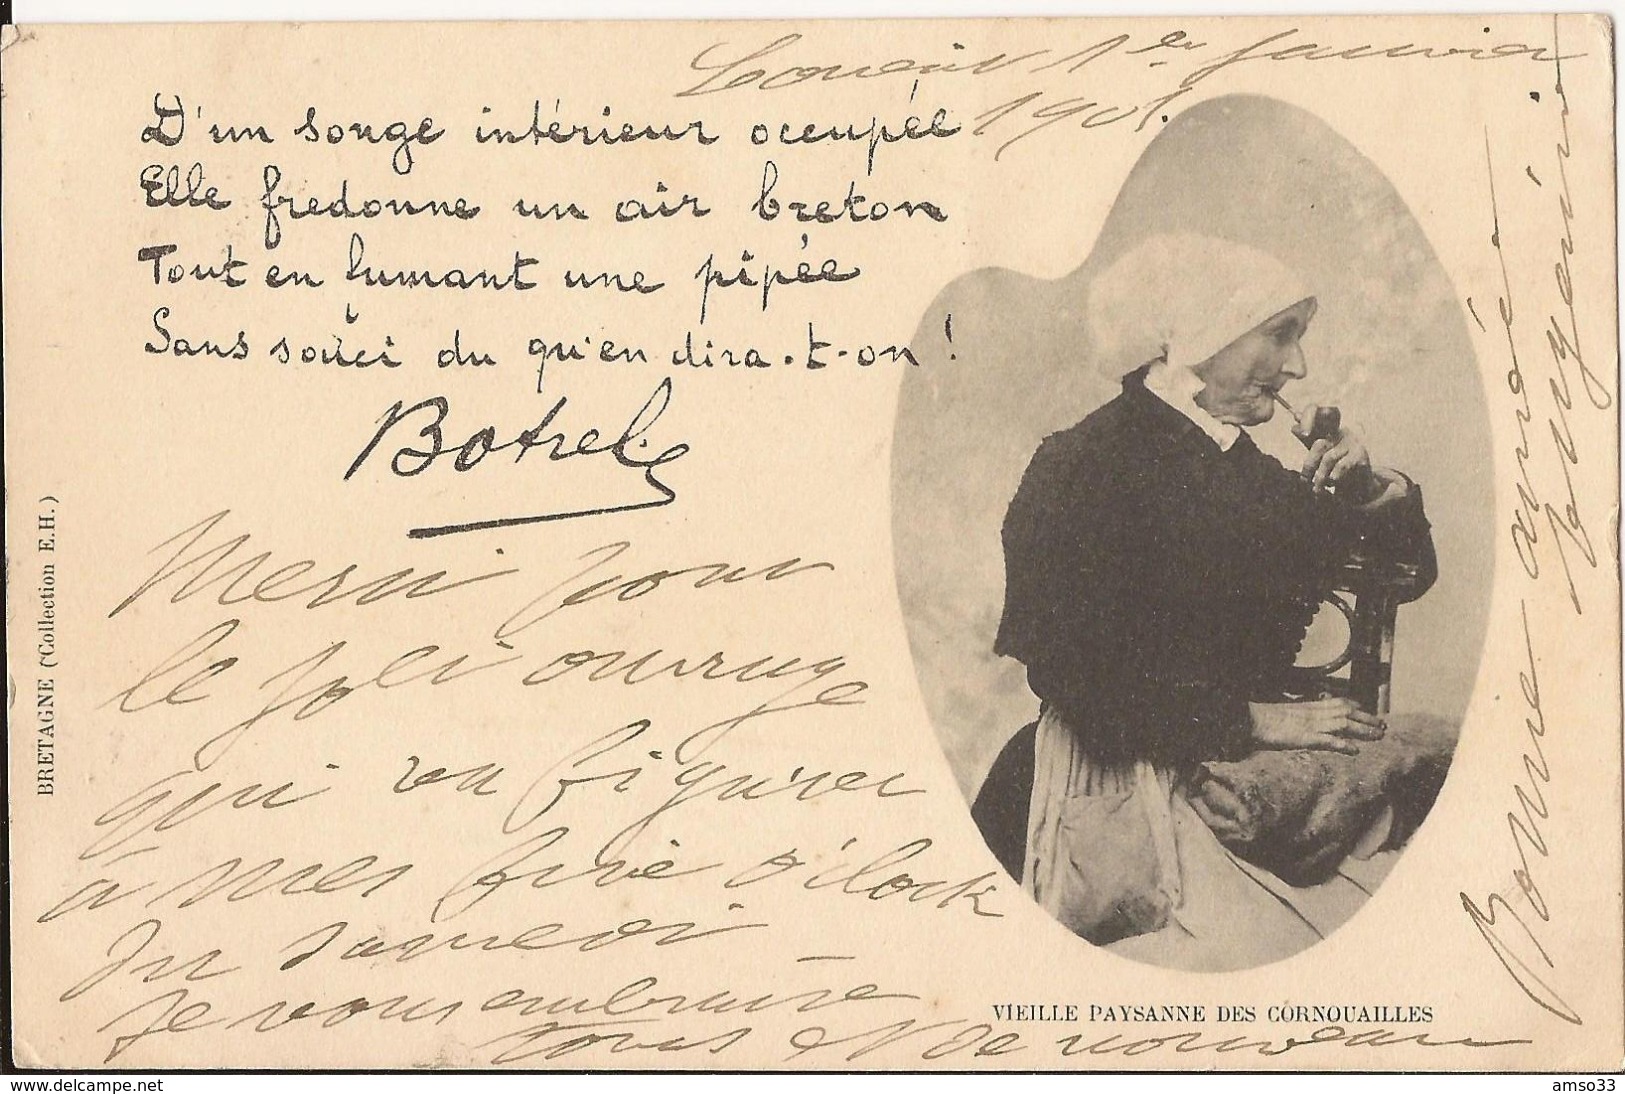 Lorient 1er Janvier
1901.
D'un songe intérieur occupée
Elle fredonne un air breton
Tout en fumant une pipée
Sans souci du qu'en dira-t-on !
Botrel
Merci pour
le joli ouvrage
qui va figurer
à mes five o'clock
du samedi
Je vous embrasse
tous & de nouveau
Bonne année
Eugénie
BRETAGNE (Collection E.H.)
VIEILLE PAYSANNE DES CORNOUAILLES
https://www.delcampe.net
amso33